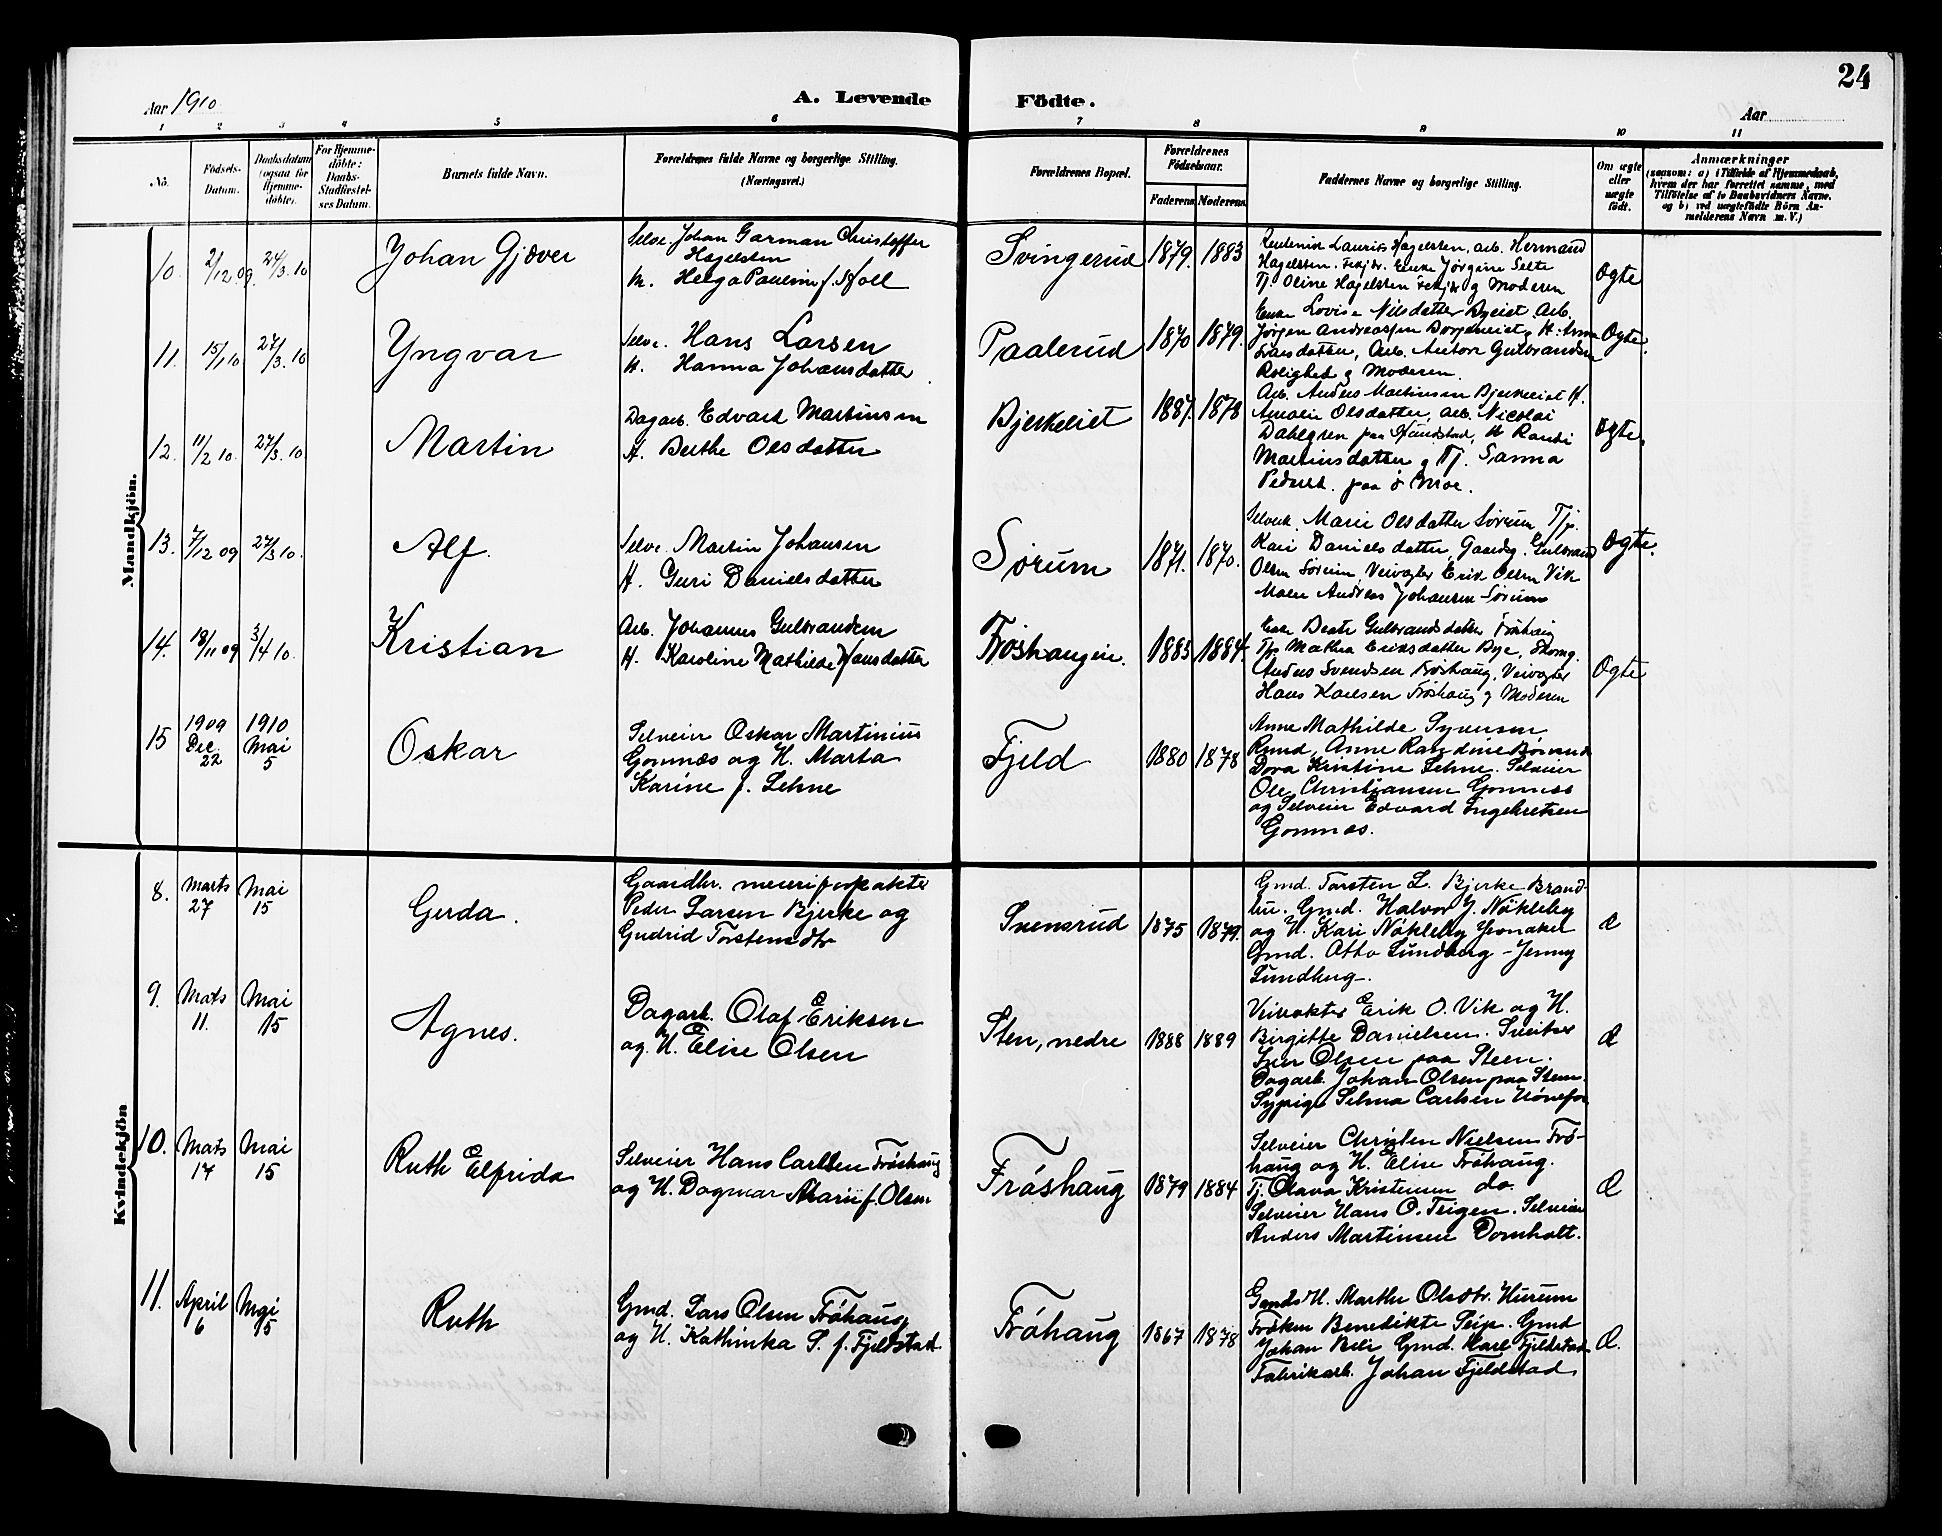 24
Aar 1910
A. Levende Födte.
Aar
1 2 3 4 5 6 7 8 9 10 11
No.
Födsels-Datum.
Daabsdatum (ogsaa for Hjemmedöbte).
For Hjemmedöbte: Daabs-Stadfæstelses Datum.
Barnets fulde Navn.
Forældrenes fulde Navne og borgerlige Stilling. (Næringsvei.)
Forældrenes Bopæl.
Forældrenes Födselsaar.
Faderens Moderens
Faddernes Navne og borgerlige Stilling.
Om ægte eller uægte født.
Anmærkninger
(saasom: a) i Tilfælde af Hjemmedaab,
hvem der har forrettet samme, med
Tilföielse af to Daabsvidners Navne.
og b) ved uægtefödte Börn An-
melderens Navn m. V.)
Mandkjön.
10. 2/12 09. 24/3 10
Johan Gjæver
Selve. Johan Garman Christoffer
Hagelsten
H. Helga Pauline f.
Svingerud 1879. 1883
Laurits Hagelsten, Arb. Herman
Hagelsten. Enke Jørgine Selte
Tj. Oline Hagelsten og Moderen
Ogte
11. 15/1 10 27/3 10
Yngvar
Selve. Hans Larsen
H. Hanna Johansdatter
Paalerud 1870 1879.
Enke Lovise Nilsdatter Byeiet Arb.
Jørgen Andreassen H. Anna
Larsdatter, Arb. Anton Gulbrandsen
Rolighed og Moderen.
Ogte.
12. 11/2 10. 27/3. 10
Martin
Dagarb. Edvard Martinsen
H. Berthe Olsdatter
Bjerkeeiet 1887. 1878
Arb. Anders Martinsen Bjerkeeiet H.
Amalie Olsdatter, Arb. Nicolai
Dahlgren paa H Randi
Martinsdatter og Tj. Sanna
Pedersd. paa ö Moe.
Ogte.
13. 7/12 09 27/3 10.
Alf.
Selve. Martin Johansen
H. Guri Danielsdatter
Sørum 1871. 1870.
Selveh. Marie Olsdatter Sørum Tjp.
Kari Danielsdatter, Gaardbg. Gulbrand
Olsen Sørum, Veivogter Erik Olsen Vik
Maler Andreas Johansen Sørum
Ogte.
14. 18/11 09 3/4 10.
Kristian
Arb. Johannes Gulbrandsen
H. Karoline Mathilde Hansdatter
Frøshaugeie. 1883 1884.
Enke Beate Gulbrandsdatter Frøshaug
Tjp Mathea Eriksdatter Bye,
Anders Svendsen Frøshaug, Veivogter
Hans Karlsen Frøshaug og Moderen
Ogte
15 1909 Dec. 22 1910 Mai 5
Oskar
Selveier Oskar Martinius
Gomnæs og H. Marta
Karine f. Lehne
Fjeld 1880 1878
Anne Mathilde Syversen
Rund, Anne Randine
Dora Kristine Lehne. Selveier
Ole Christiansen Gomnæs
og Selveier Edvard Engebretsen
Gomnæs.
Kvindekjön
8. Marts 27 Mai 15
Gerda.
Gaardbr. meieriforpakter
Peder Larsen Bjerke og
Gudrid Torstensdtr
Svensrud 1875 1879.
Gmd. Torsten L. Bjerke Brand-
bu. Gmd. Halvor J. Nökleby
og H. Kari Nökleby Jevnaker
Gmd. Otto Lundberg - Jenny
Lundberg.
9. Mats 11. Mai 15
Agnes.
Dagarb. Olaf Eriksen
og H. Elise Olsen
Sten, nedre 1888 1889
Veivokter Erik O. Vik og H.
Birgitte Danielsen. Sveitser
Iver Olsen paa Steen.
Dagarb. Johan Olsen paa Steen.
Sypige Selma Carlsen Hönefos
10. Mats 17 Mai 15
Ruth Elfrida
Selveier Hans Carlsen Fröshaug
og H. Dagmar Marie f. Olsen
Fröshaug 1879 1884
Selveier Christen Nielsen Frø-
haug og H. Elise Fröhaug.
Tj. Olava Kristensen do.
Selveier Hans O. Teigen. Selveier
Anders Martinsen Domholt.
11. April 6 Mai 15
Ruth
Gmd. Lars Olsen Fröhaug
og H. Kathinka S. f. Fjeldstad
Fröhaug 1867 1878
Gmds H. Marthe Olsdtr. Hurum
Frøken Benedikte Seip. Gmd
Johan Beli Gmd. Karl Fjeldstad
Fabrikarb. Johan Fjeldstad.